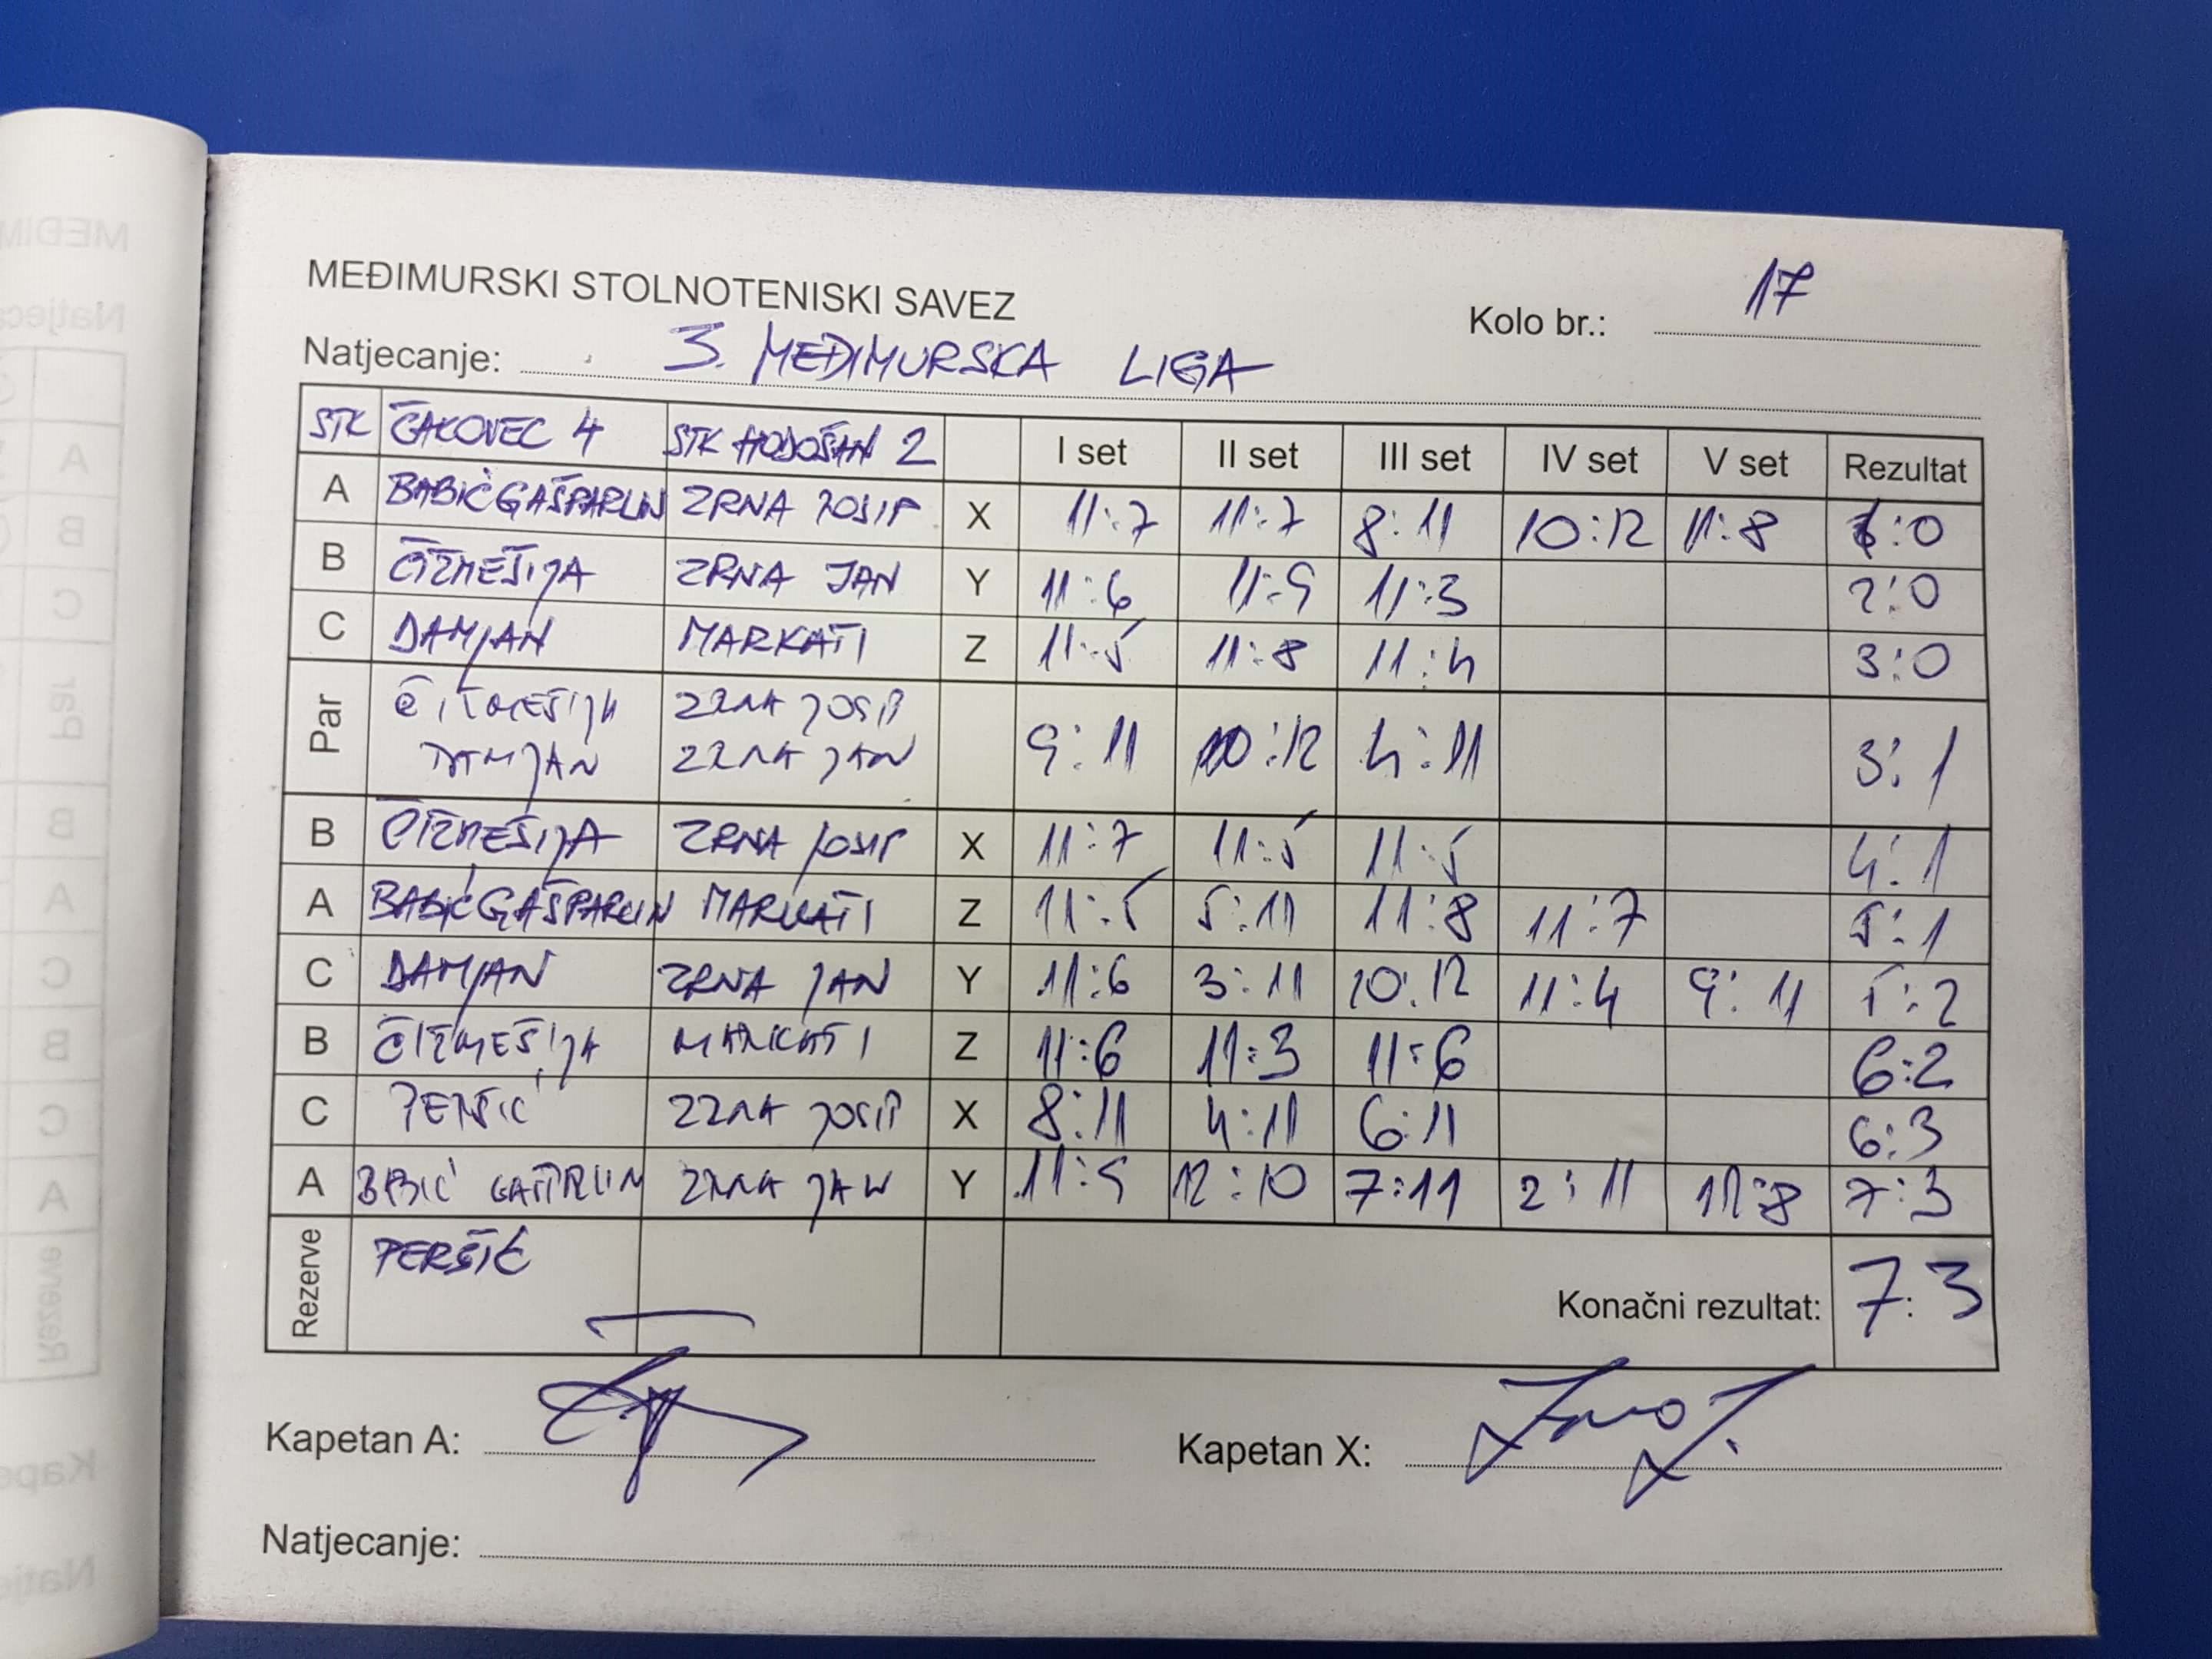 MEĐIMURSKI STOLNOTENISKI SAVEZ
Kolo br.: 17
Natjecanje: 3. MEĐIMURSKA LIGA
STK ČAKOVEC 4 STK HODOŠAN 2 I set II set III set IV set V set Rezultat
A BABIĆ GAŠPARLIN ZRNA JOSIP X 11:7 11:7 8:11 10:12 11:8 1:0
B ČIŽMEŠIJA ZRNA JAN Y 11:6 11:9 11:3 2:0
C DAMJAN MARKATI Z 11:5 11:8 11:4 3:0
Par ČIŽMEŠIJA ZRNA JOSIP
DAMJAN ZRNA JAN 9:11 10:12 4:11 3:1
B ČIŽMEŠIJA ZRNA JOSIP X 11:7 11:5 11:5 4:1
A BABIĆ GAŠPARLIN MARKATI Z 11:5 5:11 11:8 11:7 5:1
C DAMJAN ZRNA JAN Y 11:6 3:11 10:12 11:4 9:11 5:2
B ČIŽMEŠIJA MARKATI Z 11:6 11:3 11:6 6:2
C PERŠIĆ ZRNA JOSIP X 8:11 4:11 6:11 6:3
A BABIĆ GAŠPARLIN ZRNA JAN Y 11:9 12:10 7:11 2:11 11:8 7:3
Rezerve PERŠIĆ
Konačni rezultat: 7:3
Kapetan A: Kapetan X:
Natjecanje: